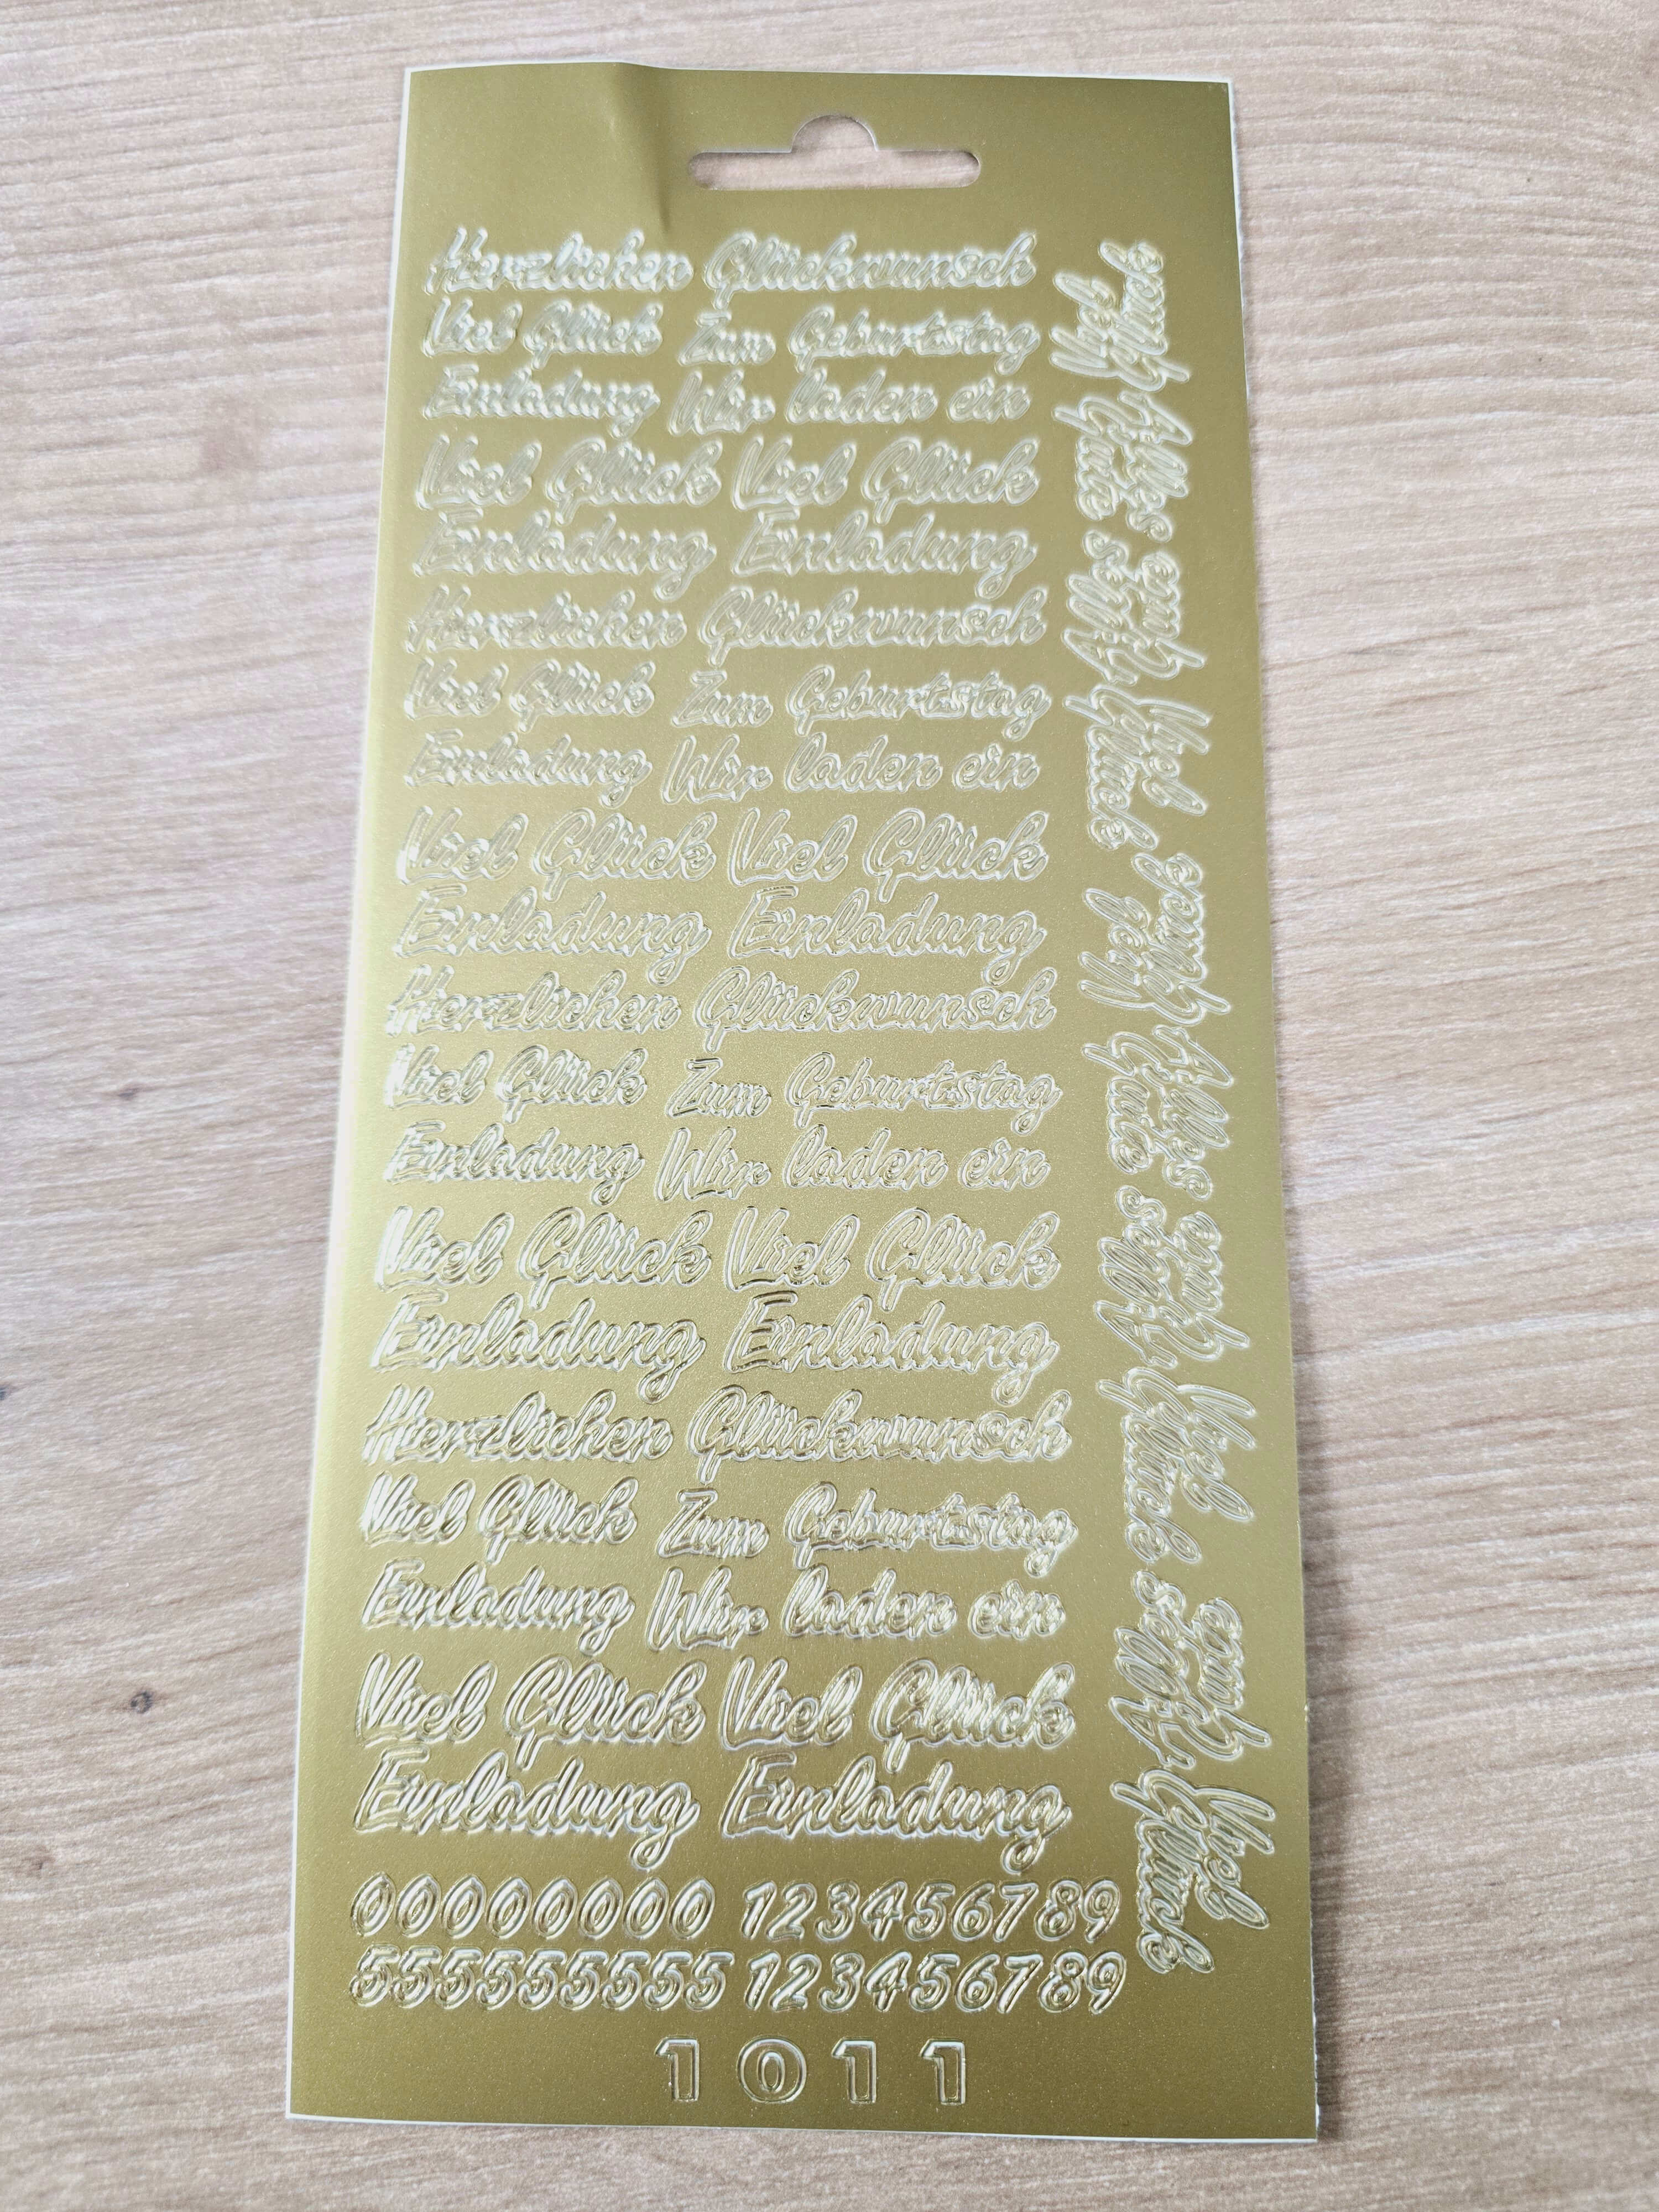 Herzlichen Glückwunsch
Viel Glück Zum Geburtstag
Einladung Wir laden ein
Viel Glück Viel Glück
Einladung Einladung
Herzlichen Glückwunsch
Viel Glück Zum Geburtstag
Einladung Wir laden ein
Viel Glück Viel Glück
Einladung Einladung
Herzlichen Glückwunsch
Viel Glück Zum Geburtstag
Einladung Wir laden ein
Viel Glück Viel Glück
Einladung Einladung
Herzlichen Glückwunsch
Viel Glück Zum Geburtstag
Einladung Wir laden ein
Viel Glück Viel Glück
Einladung Einladung
00000000 123456789
555555555 123456789
1011
Alles
Gute
Viel
Glück
Alles
Gute
Viel
Glück
Viel
Glück